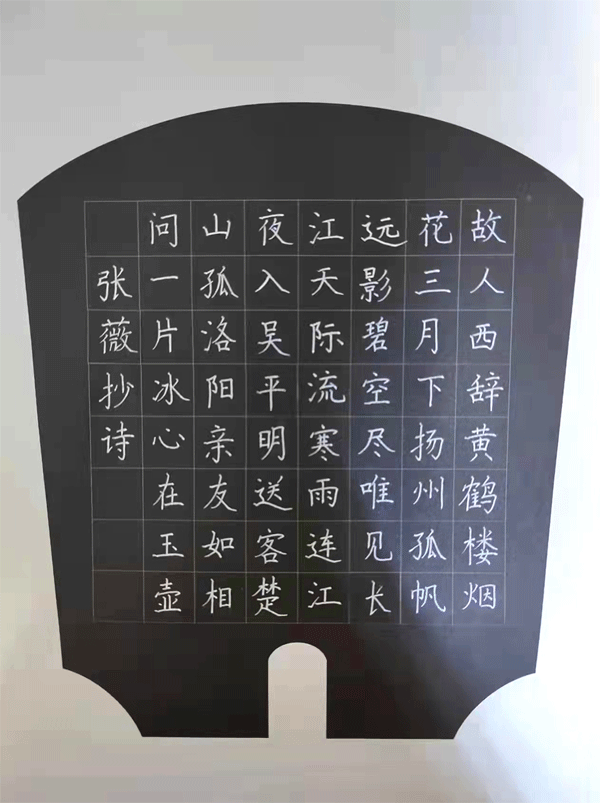 故人西辞黄鹤楼烟
花三月下扬州孤帆
远影碧空尽唯见长
江天际流寒雨连江
夜入吴平明送客楚
山孤洛阳亲友如相
问一片冰心在玉壶
张薇抄诗